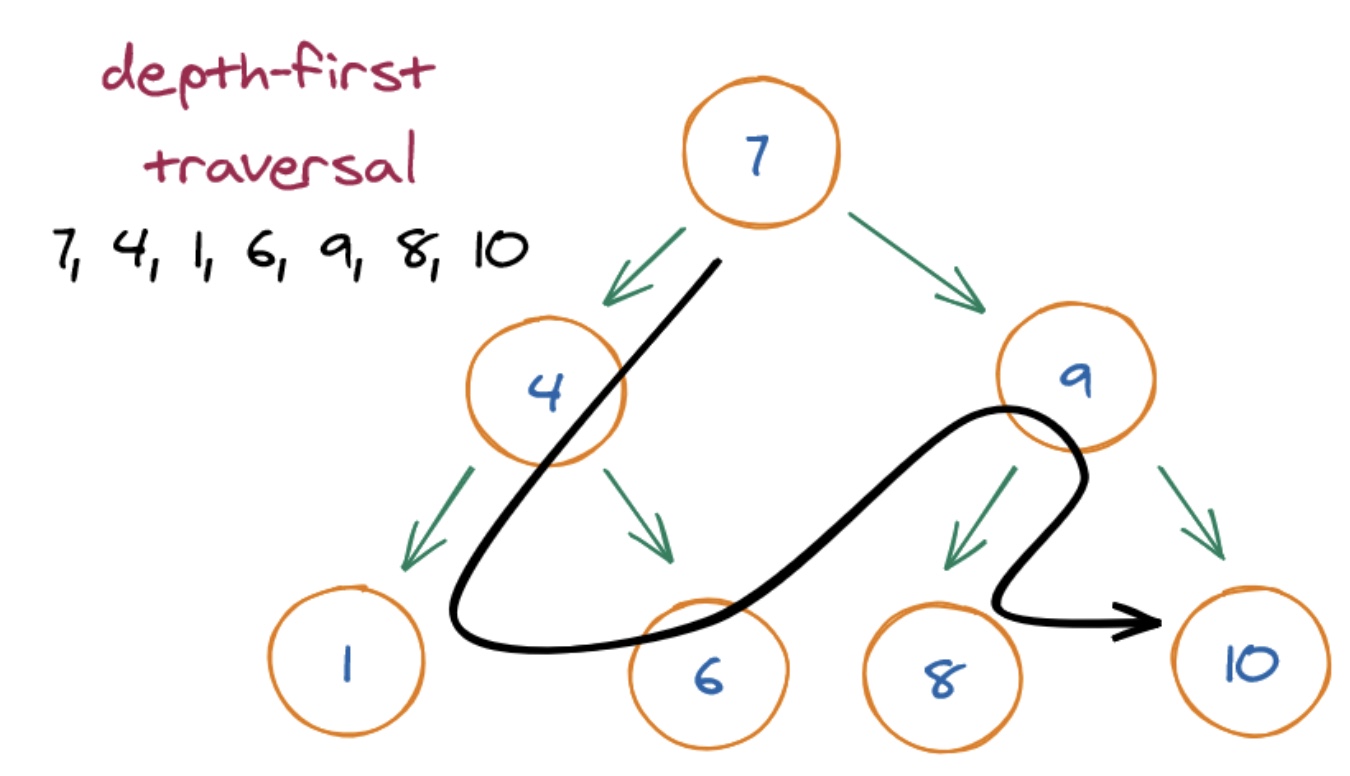 depth-first
traversal
7, 4, 1, 6, 9, 8, 10
7
4
9
1
6
8
10